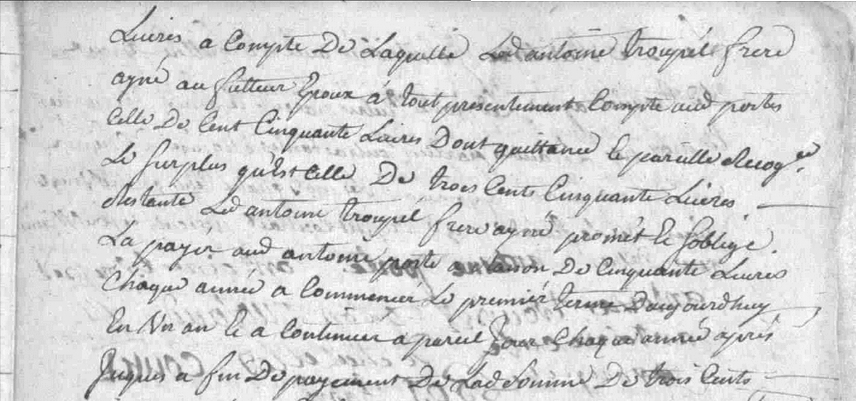 Livres a Compte De Laquelle Led antoine troupel frere
ayné au futteur Epoux á tout presentement Compte aud portes
Celle De Cent Cinquante Livres Dont quittance le pareille Recog.ce
Le surplus qu'Est Celle De trois Cents Cinquante Livres
Restante Led antoine troupel frere ayné promet le soblige
La payer aud antoine porte a Raison De Cinquante Livres
Chaque année a Commencer Le premier terme Daujourdhuy
En Un an le a Continuer a pareil Jour Chaque année aprés
Juques a fin De payement De Lad Somme De trois Cents